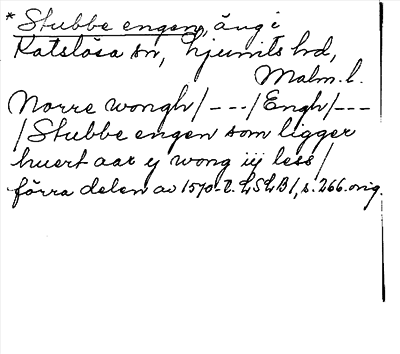 * Stubbe engen, äng i
Katslösa sn, Ljunits hd,
Malm. l.
Norre wongh / --- / Engh / ---
/ Stubbe engen som ligger
huert aar y wong iij less /
förra delen av 1570-t. LSLB 1, s. 266. orig.